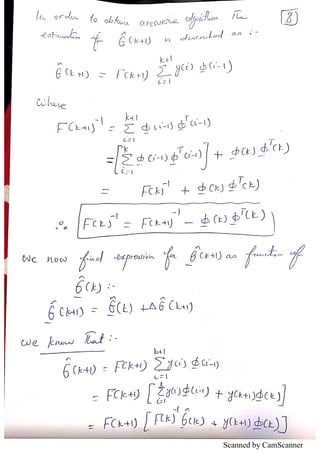 In order to obtain a recursive algorithm The [8]
estimation of θ̂(k+1) is described as :-
θ̂(k+1) = F(k+1) Σ_{i=1}^{k+1} y(i) φ(i-1)
Where
F(k+1)^{-1} = Σ_{i=1}^{k+1} φ(i-1) φ^T(i-1)
= [Σ_{i=1}^{k} φ(i-1) φ^T(i-1)] + φ(k) φ^T(k)
= F(k)^{-1} + φ(k) φ^T(k)
∴ F(k)^{-1} = F(k+1)^{-1} - φ(k) φ^T(k)
we now find expression for θ̂(k+1) as function of
θ̂(k) :-
θ̂(k+1) = θ̂(k) + Δθ̂(k+1)
we know That :-
θ̂(k+1) = F(k+1) Σ_{i=1}^{k+1} y(i) φ(i-1)
= F(k+1) [Σ_{i=1}^{k} y(i) φ(i-1) + y(k+1) φ(k)]
= F(k+1) [F(k)^{-1} θ̂(k) + y(k+1) φ(k)]
Scanned by CamScanner